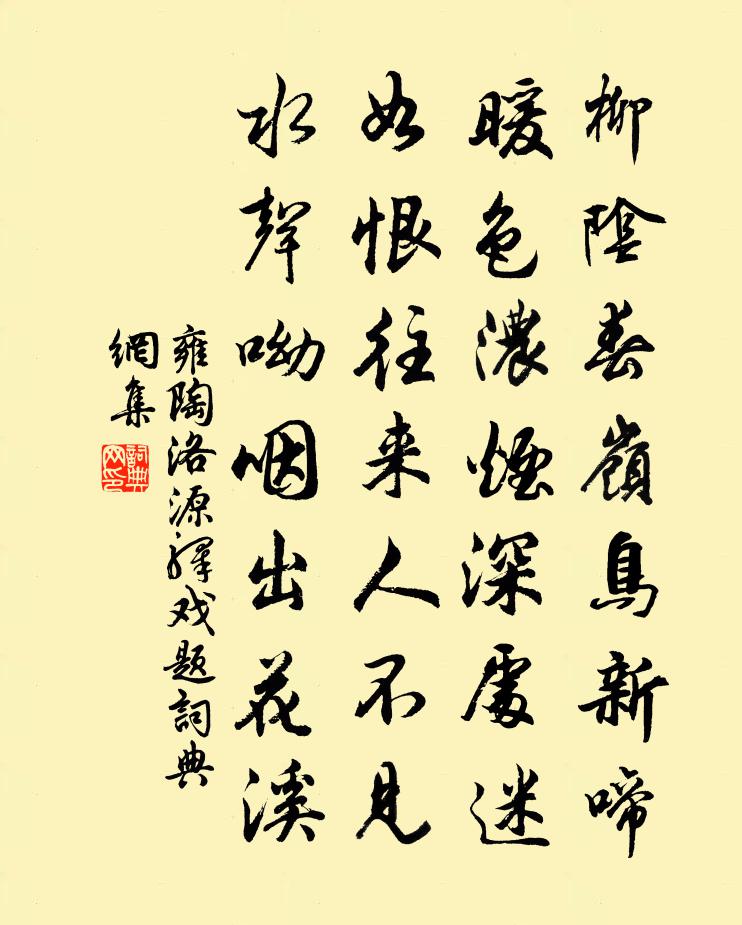 柳陰春嶺鳥新啼
暖色濃煙深處迷
如恨往來人不見
水聲呦咽出花溪
雍陶洛源驛戏題詞典
網集
詞典
网印